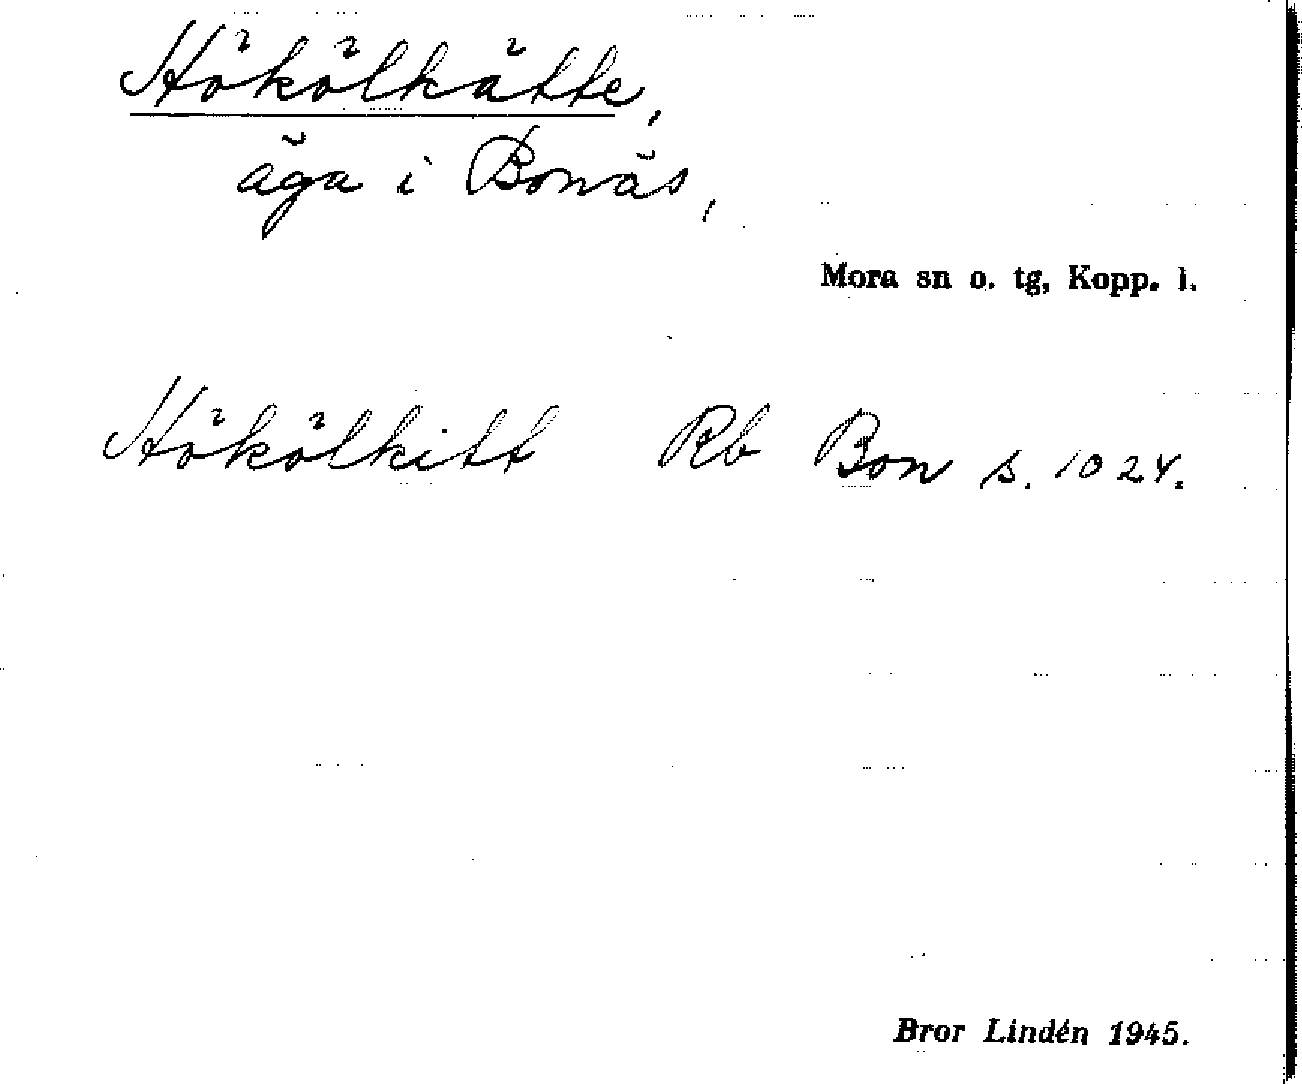 Hökölkätte,
äga i Bonäs,
Mora sn o. tg, Kopp. l.
Hökölkitt Rb Bon s. 1024.
Bror Lindén 1945.